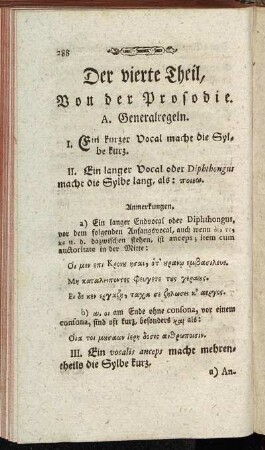 288
Der vierte Theil,
Von der Prosodie.
A. Generalregeln.
I. Ein kurzer Vocal macht die Syl-
be kurz.
II. Ein langer Vocal oder Diphthongus
macht die Sylbe lang, als: ποιεω.
Anmerkungen.
a) Ein langer Endvocal oder Diphthongus,
vor dem folgenden Anfangsvocal, auch wenn
u. d. dazwischen stehen, ist anceps; item cum
auctoritate in der Mitte:
Οι μεν επι Κρονου ησαν, ὁτ' ουρανω εμβασιλευε.
Μη καταλειποντες φευγετε τυς γεραιυς.
Ει δε κεν εργαζη, ταχα σε ζηλωσει αεργος.
b) αι, οι am Ende ohne consona, vor einem
consona, sind oft kurz, besonders και als:
Οια τοι μυσαων ιερη δοσις ανθρωποισιν.
III. Ein vocalis anceps macht mehren-
theils die Sylbe kurz.
a) An-